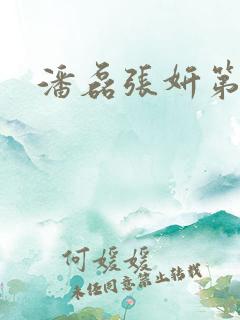 潘磊張妍第
何媛媛
未经同意禁止转载